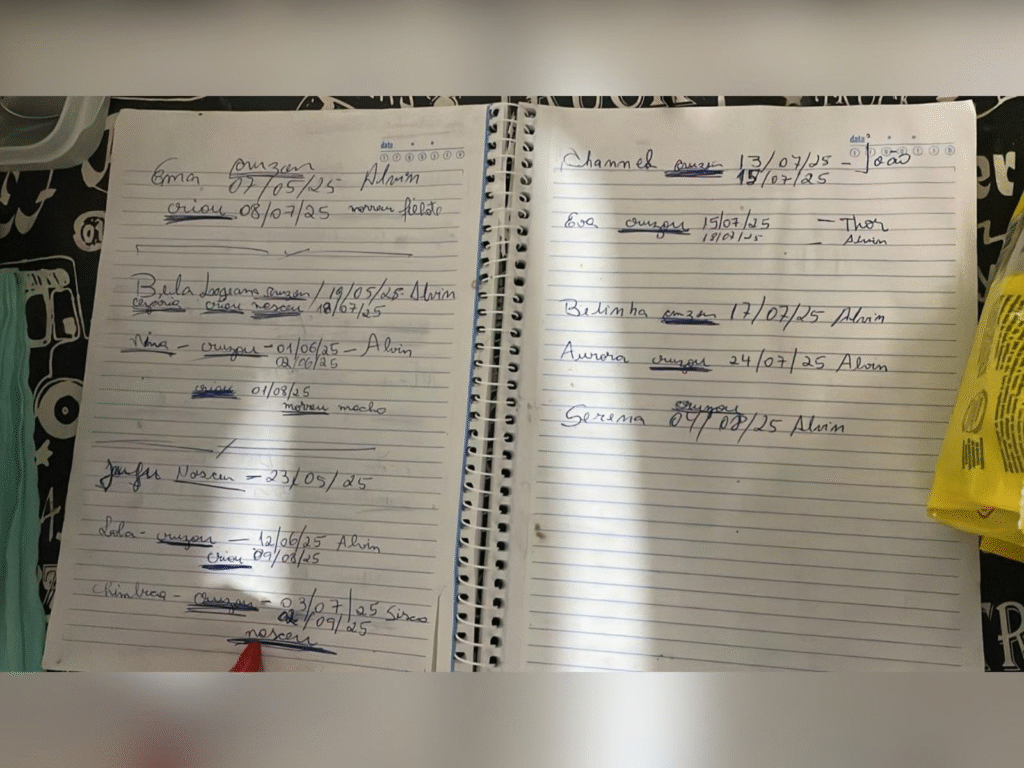 data
cruzou
Ema 07/05/25 Alvin
criou 08/07/25 morreu filhote
Bela cruzou / 19/05/25 - Alvin
criou nasceu 18/07/25
Nina - cruzou - 01/06/25 - Alvin
02/06/25
criou 01/08/25
morreu macho
Nasceu - 23/05/25
Lola - cruzou - 12/06/25 Alvin
criou 09/08/25
cruzou - 03/07/25
02/09/25
nasceu
data
Channel cruzou 13/07/25 - João
15/07/25
Eva cruzou 15/07/25 - Thor
18/07/25 - Alvin
Belinha cruzou 17/07/25 Alvin
Aurora cruzou 24/07/25 Alvin
cruzou
Serena 04/08/25 Alvin